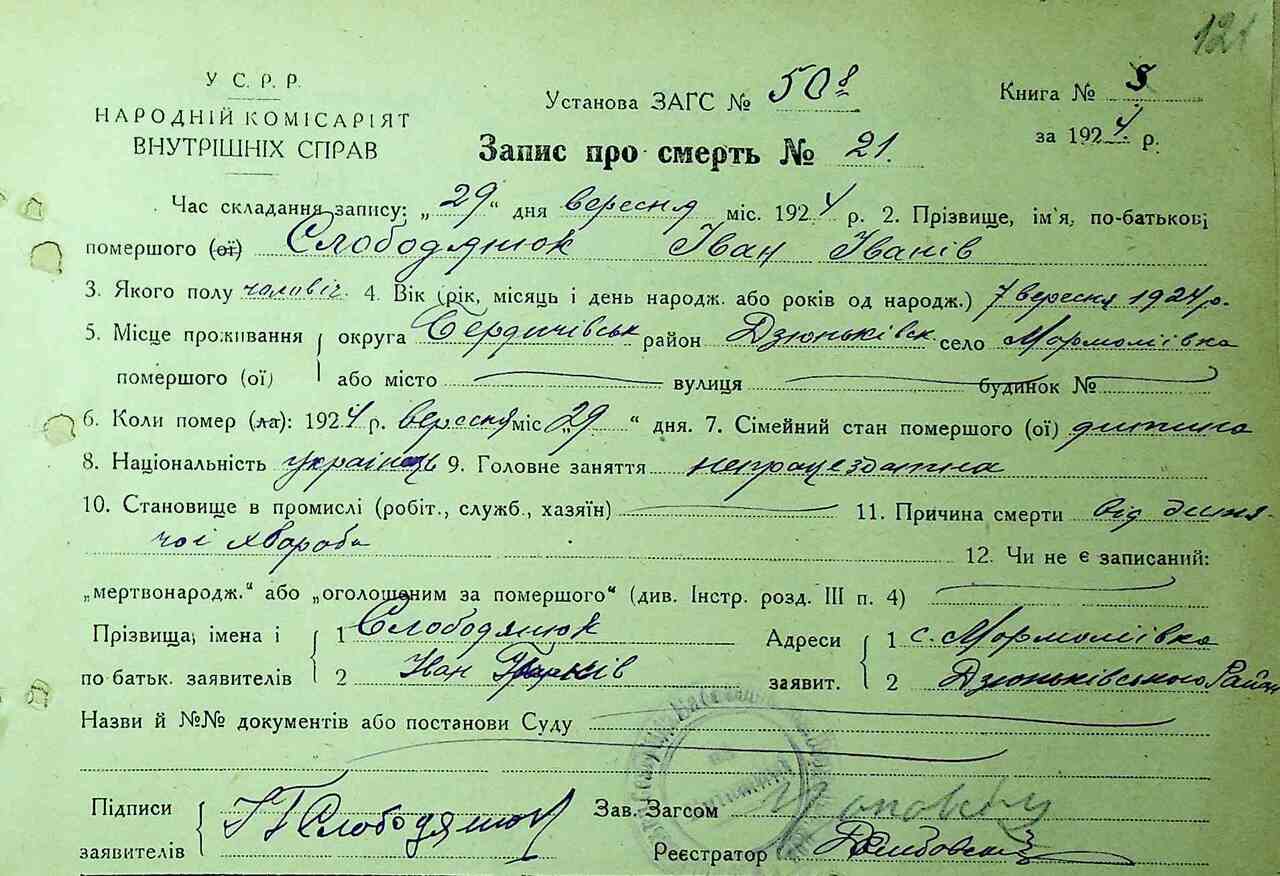 121
У С. Р. Р.
НАРОДНІЙ КОМІСАРІЯТ
ВНУТРІШНІХ СПРАВ
Установа ЗАГС № 508
Книга № 5
за 1924 р.
Запис про смерть № 21.
Час складання запису: „29“ дня вересня міс. 1924 р. 2. Прізвище, ім'я, по-батькові
помершого (ої) Слободянюк Іван Іванів
3. Якого полу чоловіч. 4. Вік (рік, місяць і день народж. або років од народж.) 7 вересня 1924 р.
5. Місце проживання округа Бердичівськ район Дзюньківськ. село Мормоліївка
помершого (ої) або місто вулиця будинок №
6. Коли помер (ла): 1924 р. вересня міс „29“ дня. 7. Сімейний стан помершого (ої) дитина
8. Національність українець 9. Головне заняття непрацездатна
10. Становище в промислі (робіт., служб., хазяїн) 11. Причина смерти від дитя-
чої хвороби 12. Чи не є записаний:
„мертвонародж.“ або „оголошеним за помершого“ (див. Інстр. розд. III п. 4)
Прізвища, імена і 1 Слободянюк Адреси 1 с. Мормоліївка
по батьк. заявителів 2 Іван заявит. 2 Дзюньківського Район
Назви й №№ документів або постанови Суду
Підписи Слободянюк Зав. Загсом
заявителів Реєстратор